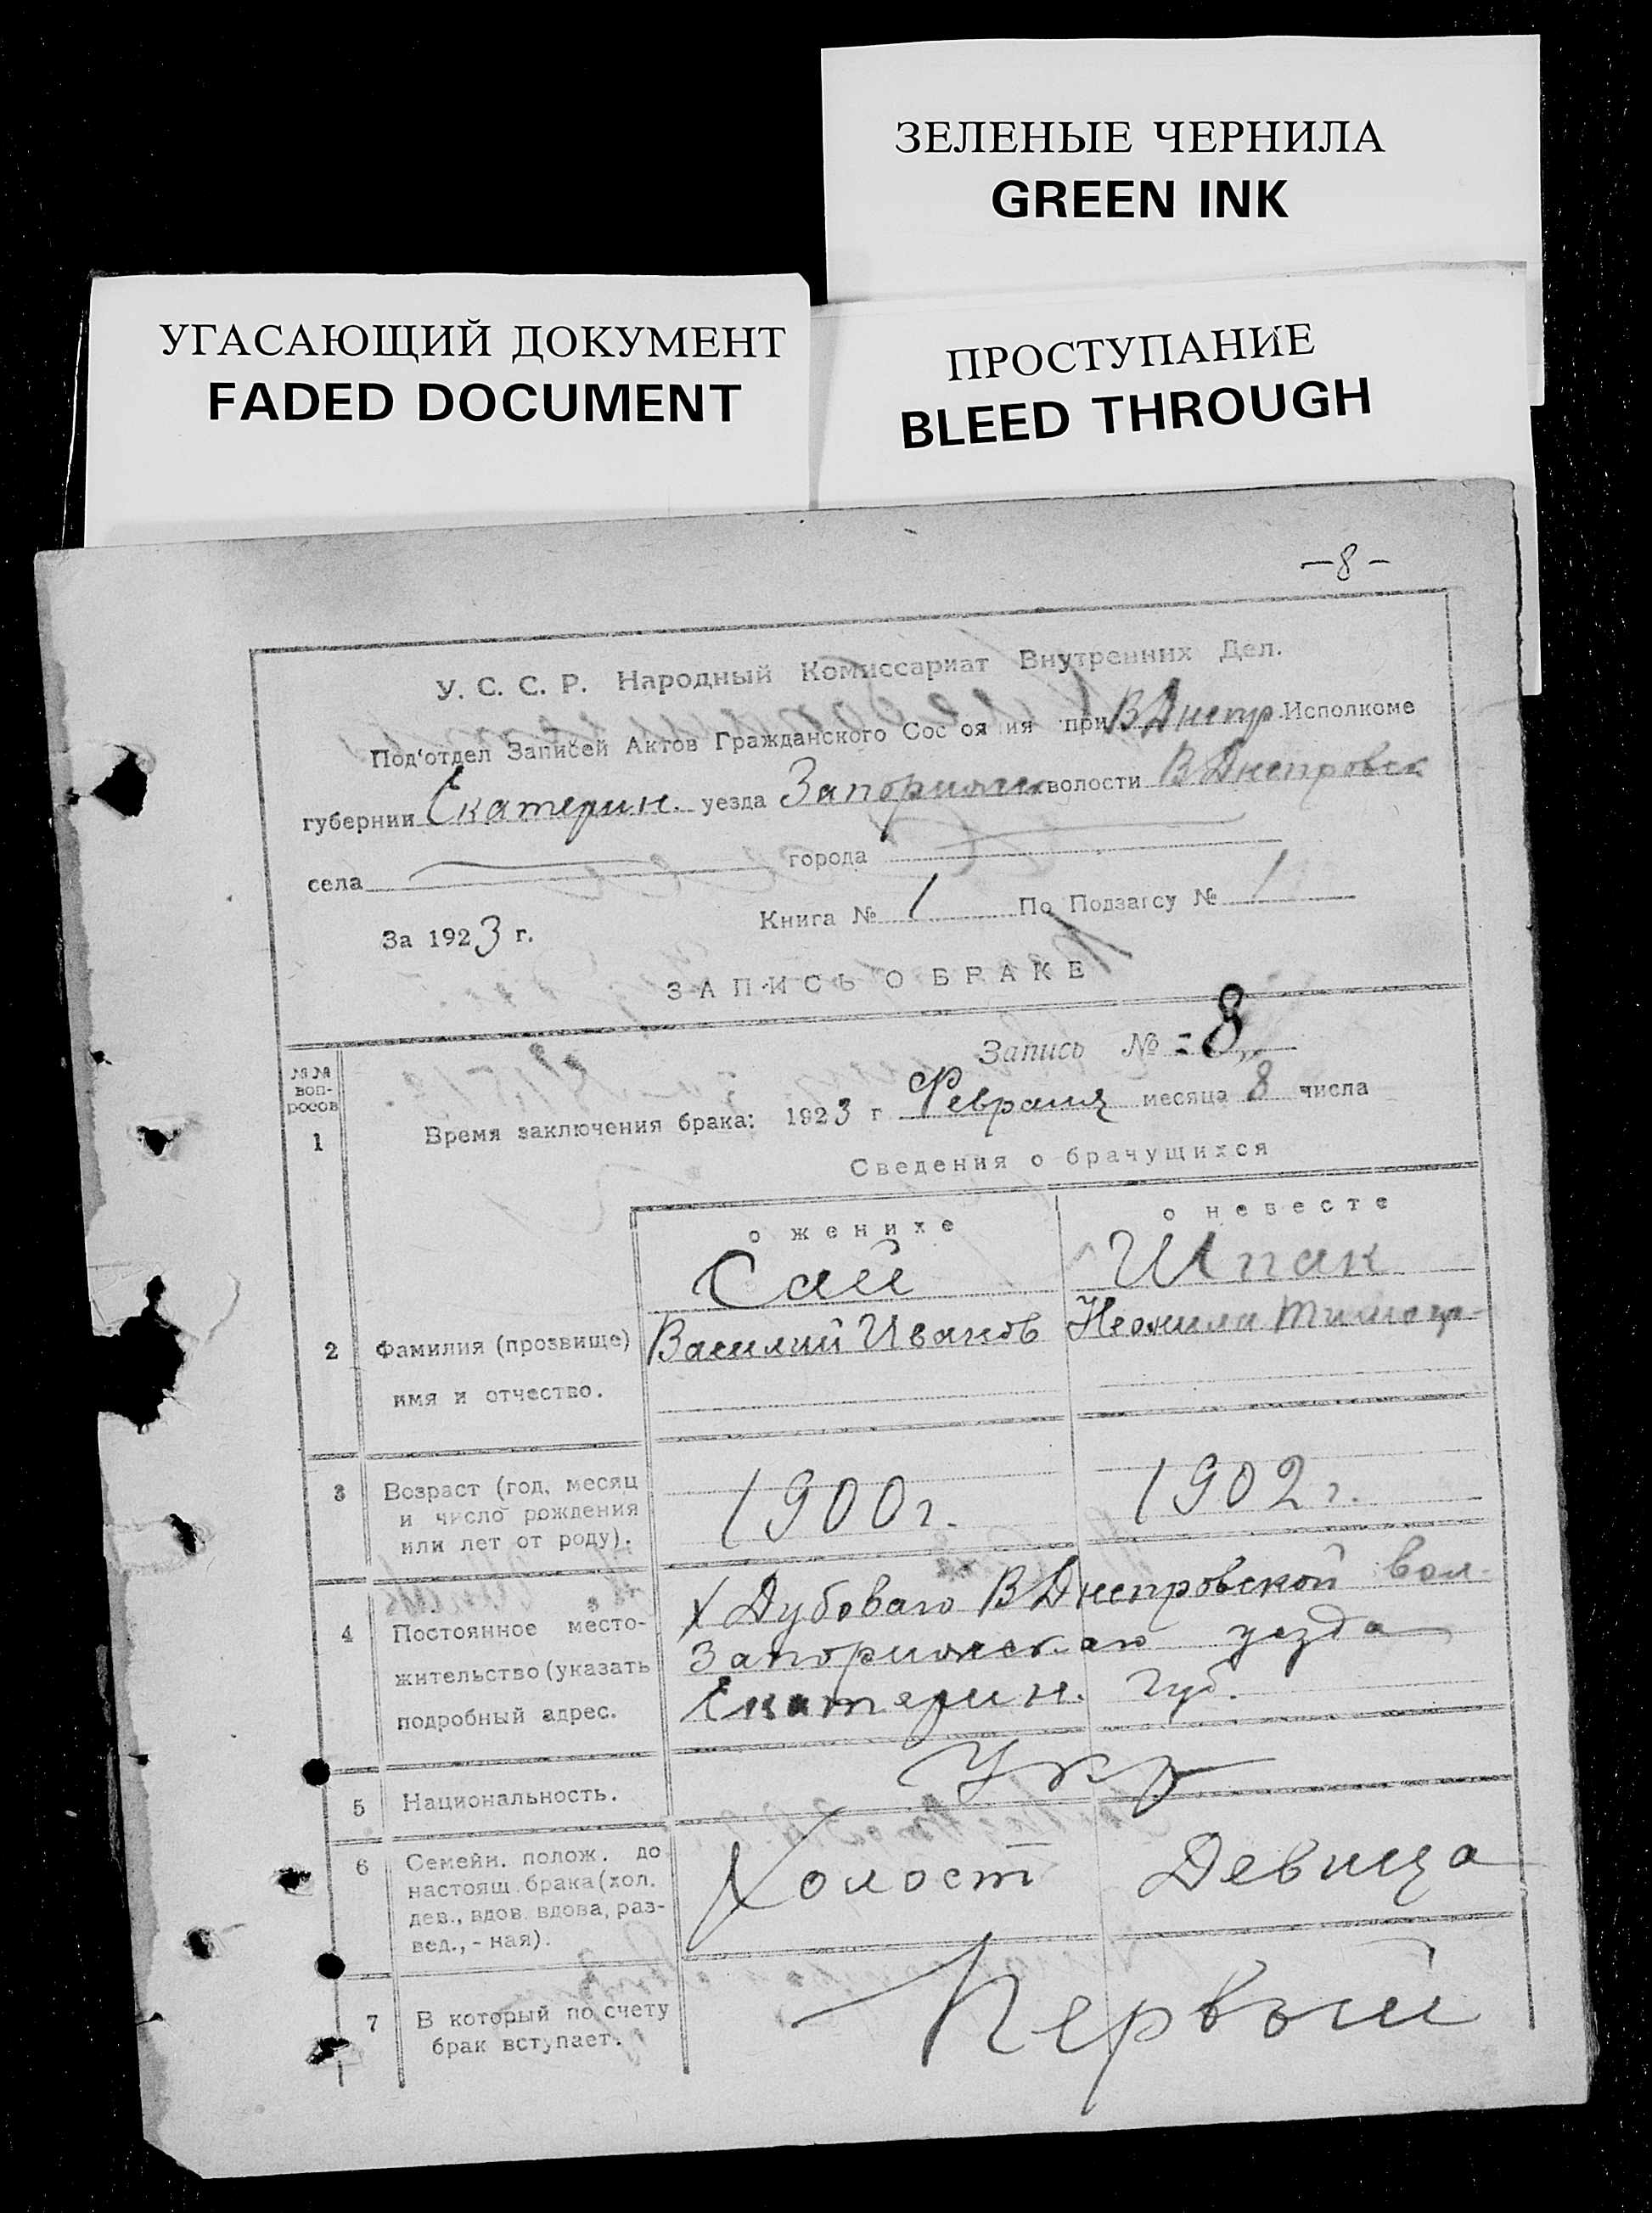 ЗЕЛЕНЫЕ ЧЕРНИЛА
GREEN INK
УГАСАЮЩИЙ ДОКУМЕНТ
FADED DOCUMENT
ПРОСТУПАНИЕ
BLEED THROUGH
—8—
У. С. С. Р. Народный Комиссариат Внутренних Дел.
Под'отдел Записей Актов Гражданского Сос оя ия при ВДнепр. Исполкоме
губернии Екатерин. уезда Запорижск волости ВДнепровск
села города
За 1923 г. Книга № 1 По Подзагсу № 1
ЗАПИСЬ О БРАКЕ
Запись № = 8
№№ воп-росов
1 Время заключения брака: 1923 г Февраля месяца 8 числа
Сведения о брачущихся
о женихе о невесте
Сай Шпак
2 Фамилия (прозвище) Василий Иванов Неонила Тимоф-
имя и отчество.
3 Возраст (год, месяц
и число рождения 1900г. 1902г.
или лет от роду).
4 Постоянное место- х Дубоваго ВДнепровской вол.
жительство (указать Запорижскаго уезда
подробный адрес. Екатерин. губ.
5 Национальность. Укр
6 Семейн. полож. до
настоящ. брака (хол. Холост Девица
дев., вдов. вдова, раз-
вед., - ная).
7 В который по счету Первый
брак вступает.